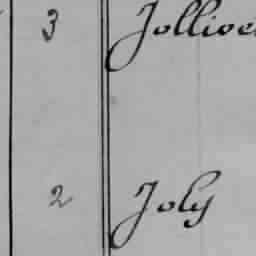 3 Jollive
2 Joly